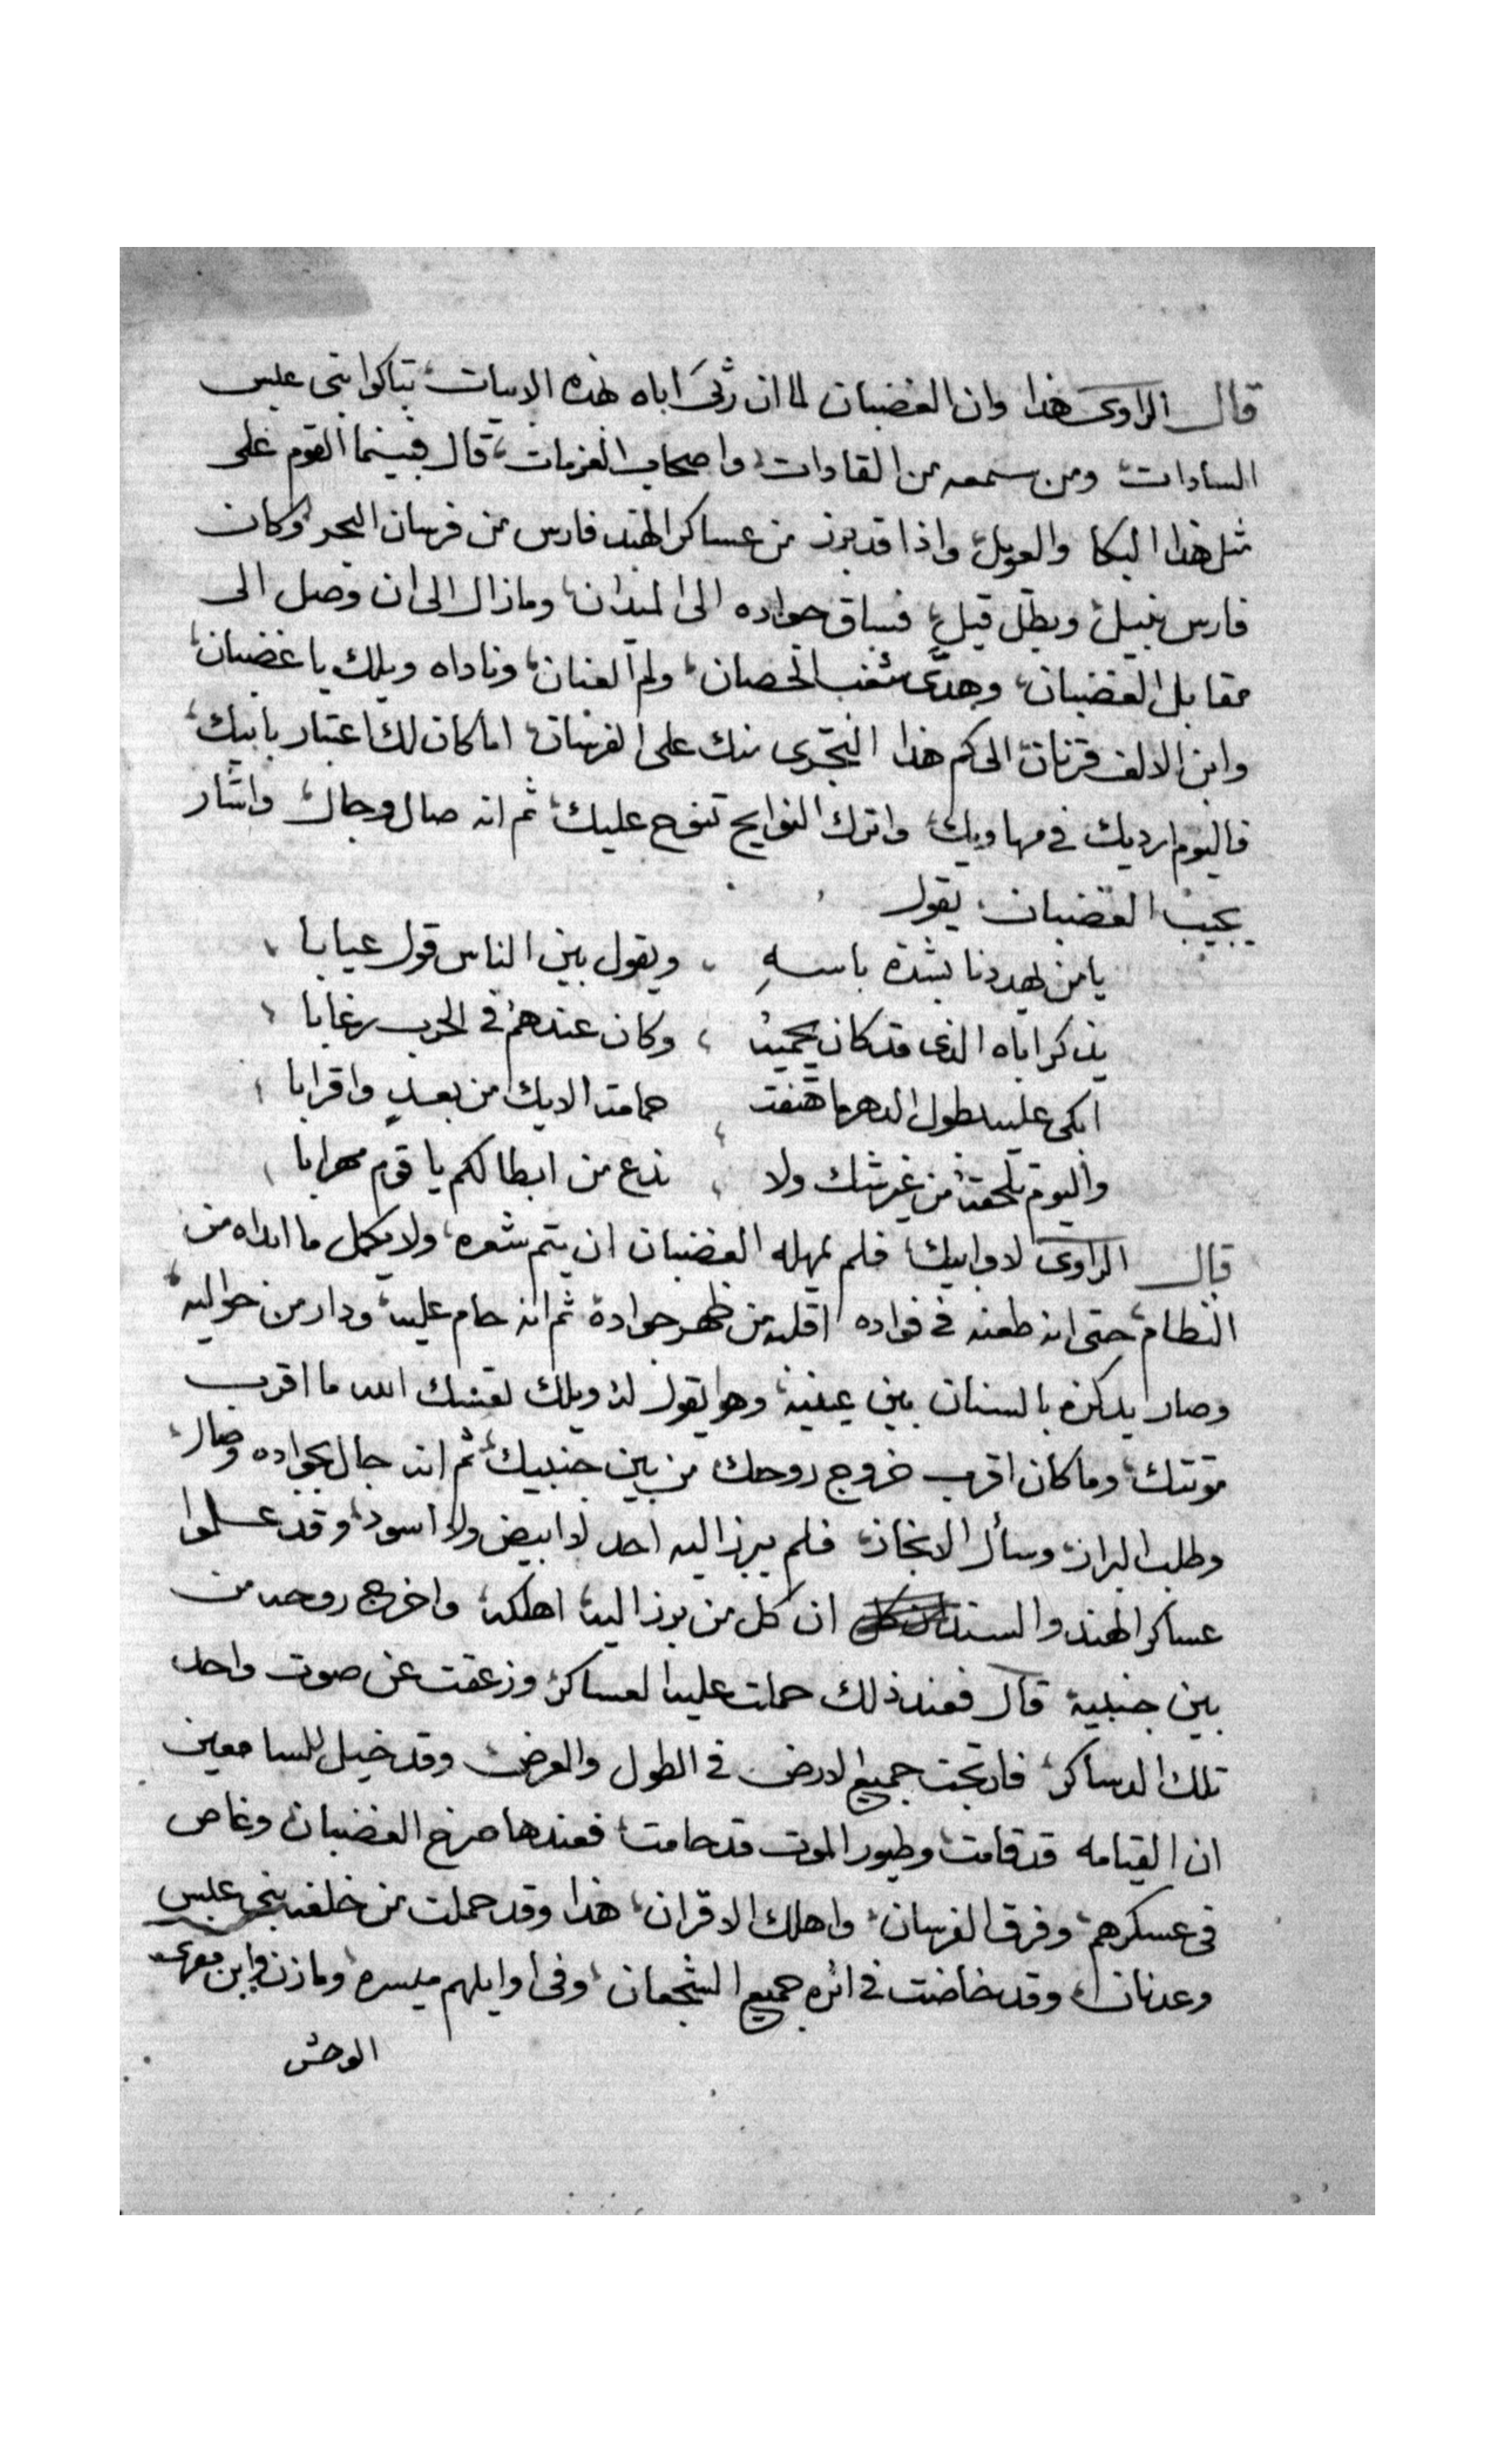 قال الراوى هذا وان الغضبان لما ان رثى اباه بهذه الابيات، تباكوا بنى عبس
السادات، ومن سمعه من القادات، واصحاب العزمات، قال فبينما القوم على
مثل هذا البكا والعويل، واذا قد برز من عساكر الهند فارس من فرسان البحر وكان
فارس نبيل، وبطل قيل، فساق جواده الى الميدان، ومازال الى ان وصل الى
مقابل الغضبان، وهدى شغب الحصان، ولم العنان، وناداه ويلك يا غضبان،
وابن الالف قرنان، الى كم هذا التجرى منك على الفرسان، اما كان لك اعتبار بابيك،
فاليوم ارديك فى مهاويك، واترك النوايح تنوح عليك، ثم انه صال وجال، واشار
يجيب الغضبان يقول
يا من يهددنا بشدة باسهِ ، ويقول بين الناس قول عيابا ،
يذكر اباه الذى قد كان يحميه ، وكان عندهم فى الحرب رغابا ،
ابكى عليه طول الدهر ما هتفت ، حمامة الايك من بعدٍ واقرابا ،
واليوم تلحقه من غير شك ولا ، ندع من ابطالكم يا قوم هرابا ،
قال الراوى لا وابيك، فلم يمهله الغضبان ان يتم شعره، ولا يكمل ما ابداه من
النظام، حتى انه طعنه فى فواده اقلبه من ظهر جواده ثم انه حام عليه، ودار من حواليه،
وصار يدكزه بالسنان بين عينيه، وهو يقول له ويلك لعنك الله ما اقرب
موتتك، وما كان اقرب خروج روحك من بين جنبيك، ثم انه جال بجواده وصال،
وطلب البراز، وسأل الانجاز، فلم يبرز اليه احد لا ابيض ولا اسود، وقد علموا
عساكر الهند والسند ان كل من برز اليه اهلكه، واخرج روحه من
بين جنبيه قال فعند ذلك حملت عليه العساكر، وزعقت عن صوت واحد
تلك الدساكر، فارتجت جميع الارض فى الطول والعرض، وقد خيل للسامعين
ان القيامه قد قامت، وطيور الموت قد حامت، فعندها صرخ الغضبان وغاص
فى عسكرهم، وفرق الفرسان، واهلك الاقران، هذا وقد حملت من خلفه بنى عبس
وعدنان، وقد خاضت فى اثره جميع الشجعان، وفى اوايلهم ميسره، ومازن وابن معرى
الوحش